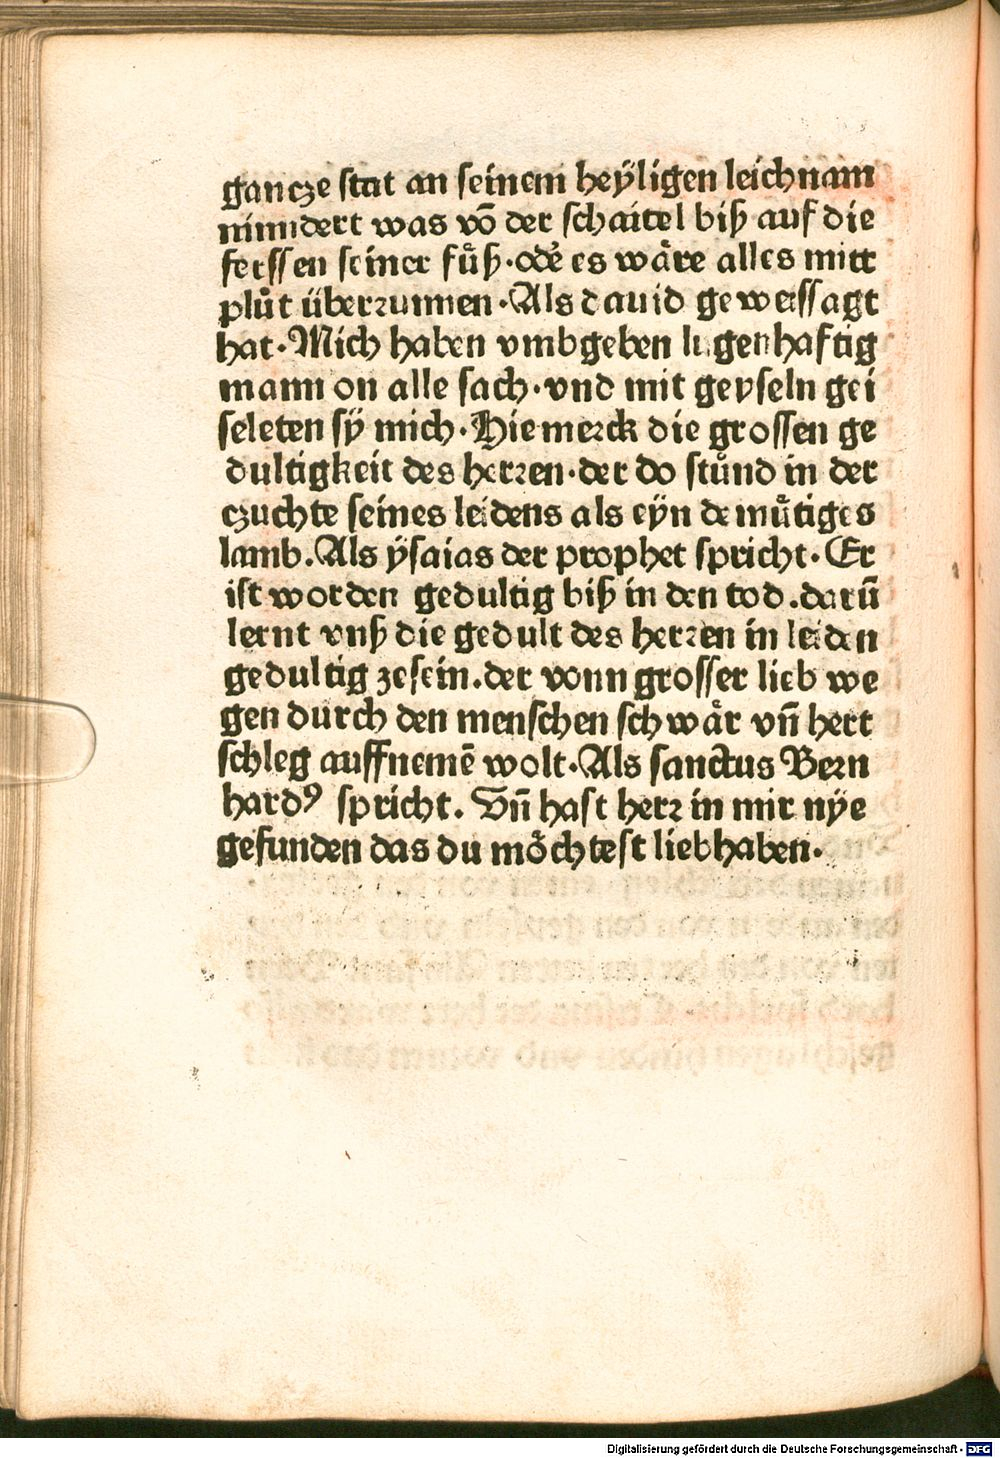 gancze stat an seinem heÿligen leichnam
ninndert was vō der schaitel biß auf die
ferssen seiner fuͤß·odẻ es wåre alles mitt
pluͦt überrunnen·Als dauid geweissagt
hat·Mich haben vmbgeben lugenhaftig
mann on alle sach·vnd mit geyseln gei
seleten sÿ mich·Hie merck die grossen ge
dultigkeit des herren·der do stuͦnd in der
czuchte seines leidens als eÿn demuͤtiges
lamb.Als ÿsaias der prophet spricht·Er
ist worden gedultig biß in den tod.darū
lernt vnß die gedult des herren in leiden
gedultig zesein.der vonn grosser lieb we
gen durch den menschen schwår vn̄ hert
schleg auffnemē wolt·Als sanctus Bern
hardꝰ spricht. Vn̄ hast herr in mir nÿe
gefunden das du moͤchtest liebhaben·
Digitalisierung gefördert durch die Deutsche Forschungsgemeinschaft - DFG